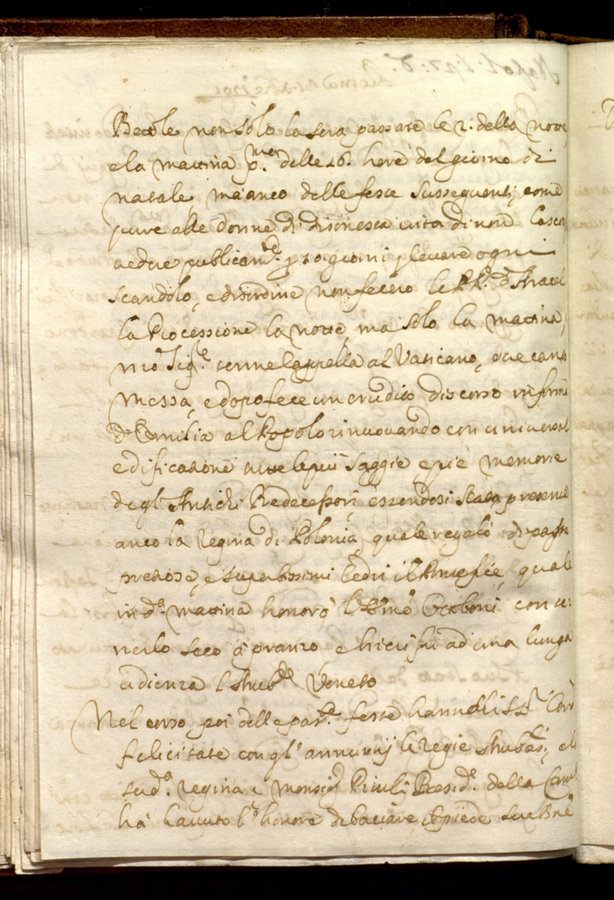 Bettole non solo la sera passate le 2. della notte
e la mattina p.ma delle 16. hore del giorno di
natale, ma anco delle feste susseguenti, come
pure alle donne di disonesta vita di non lasciar
publicam.te p 10 giorni p levare ogni
scandolo, e disordine non fecero le RR. d'Aracel
la Processione la notte, ma solo la mattina,
tenne Cappella al Vaticano, ove cantò
Messa, e dopo fece un erudito discorso in forma
d'Omilia al Popolo rinuovando con universal
edificatione tutte le più saggie e pie memorie
degl'Antichi Predecessori, essendosi stata presente
anco la Regina di Polonia, quale regalò di paste
pretiose, e superbissimi Cedri il Pontefice, quale
in d.a mattina honorò l'Em.o Ottoboni con te-
nerlo seco à pranzo e hieri fu ad una lunga
udienza l'Amb.re Veneto
Nel corso poi delle pas.te feste hanno
felicitate con gl'annuntij le Regie Amb.ri, e la
sud.a Regina e Monsig.r Presid.e della Cam.a
hà havuto l'honore di baciare il piede Sua